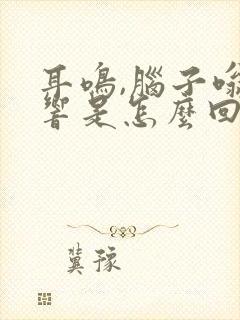 耳鳴,腦子嗡
響是怎麼回
冀豫